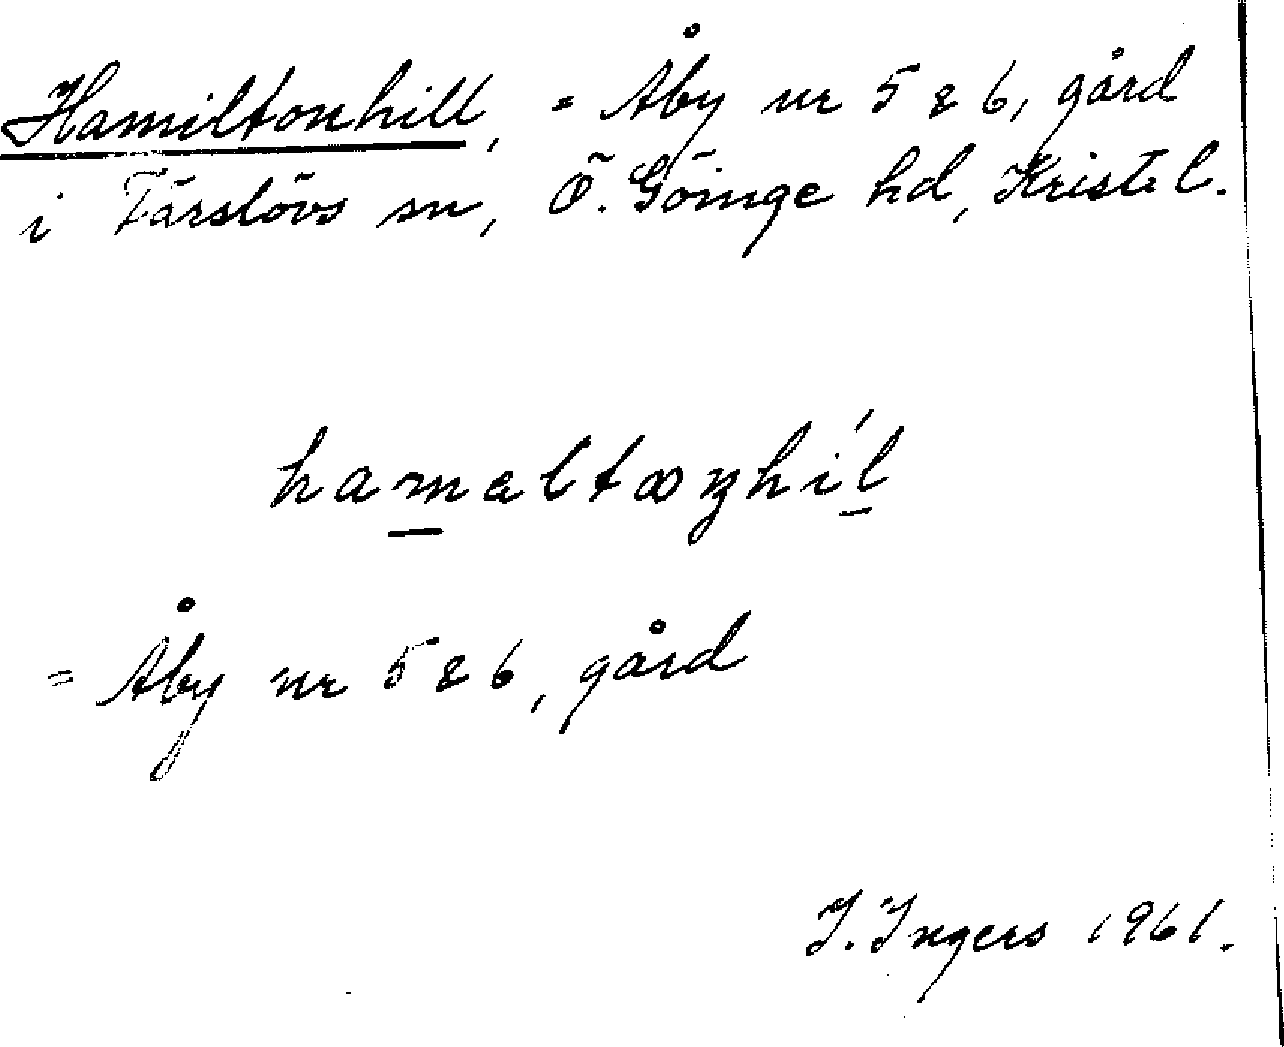 Hamiltonhill, = Åby nr 5 & 6, gård
i Färslövs sn, Ö. Göinge hd, Kristel.
= Åby nr 5 & 6, gård
I. Ingers 1961.